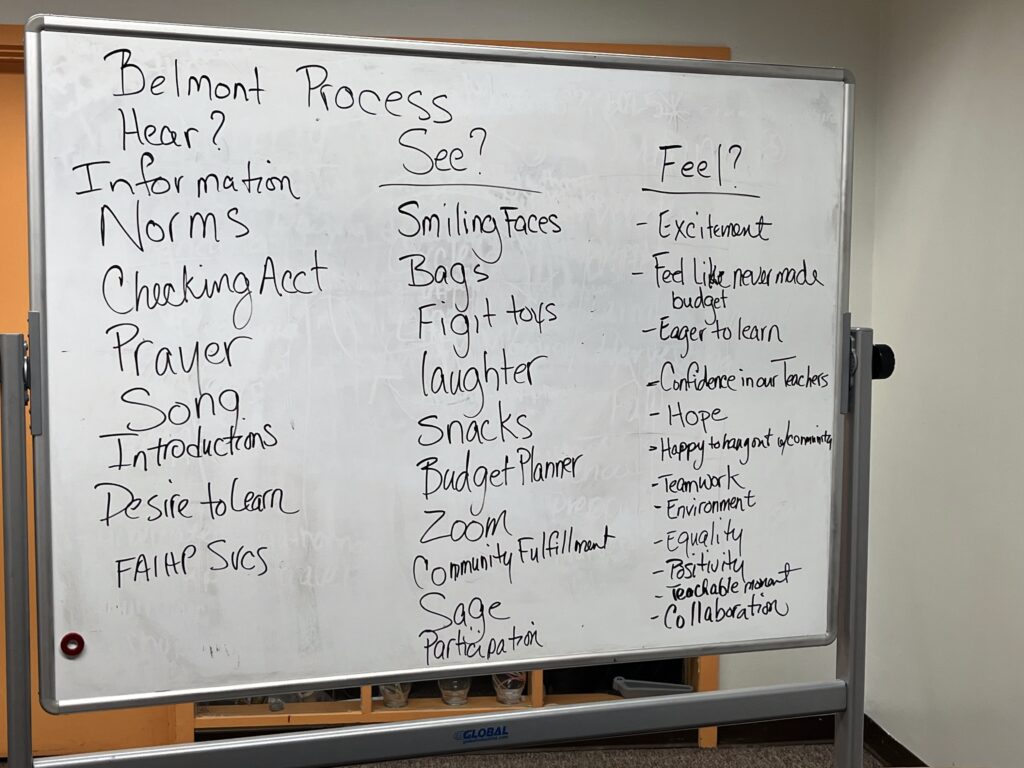 Belmont Process
Hear?
Information
Norms
Checking Acct
Prayer
Song
Introductions
Desire to learn
FAIHP Svcs
See?
Smiling Faces
Bags
Figit toys
laughter
Snacks
Budget Planner
Zoom
Community Fulfillment
Sage
Participation
Feel?
- Excitement
- Feel like never made
budget
- Eager to learn
- Confidence in our Teachers
- Hope
- Happy to hang out w/community
- Teamwork
- Environment
- Equality
- Positivity
- Teachable moment
- Collaboration
GLOBAL